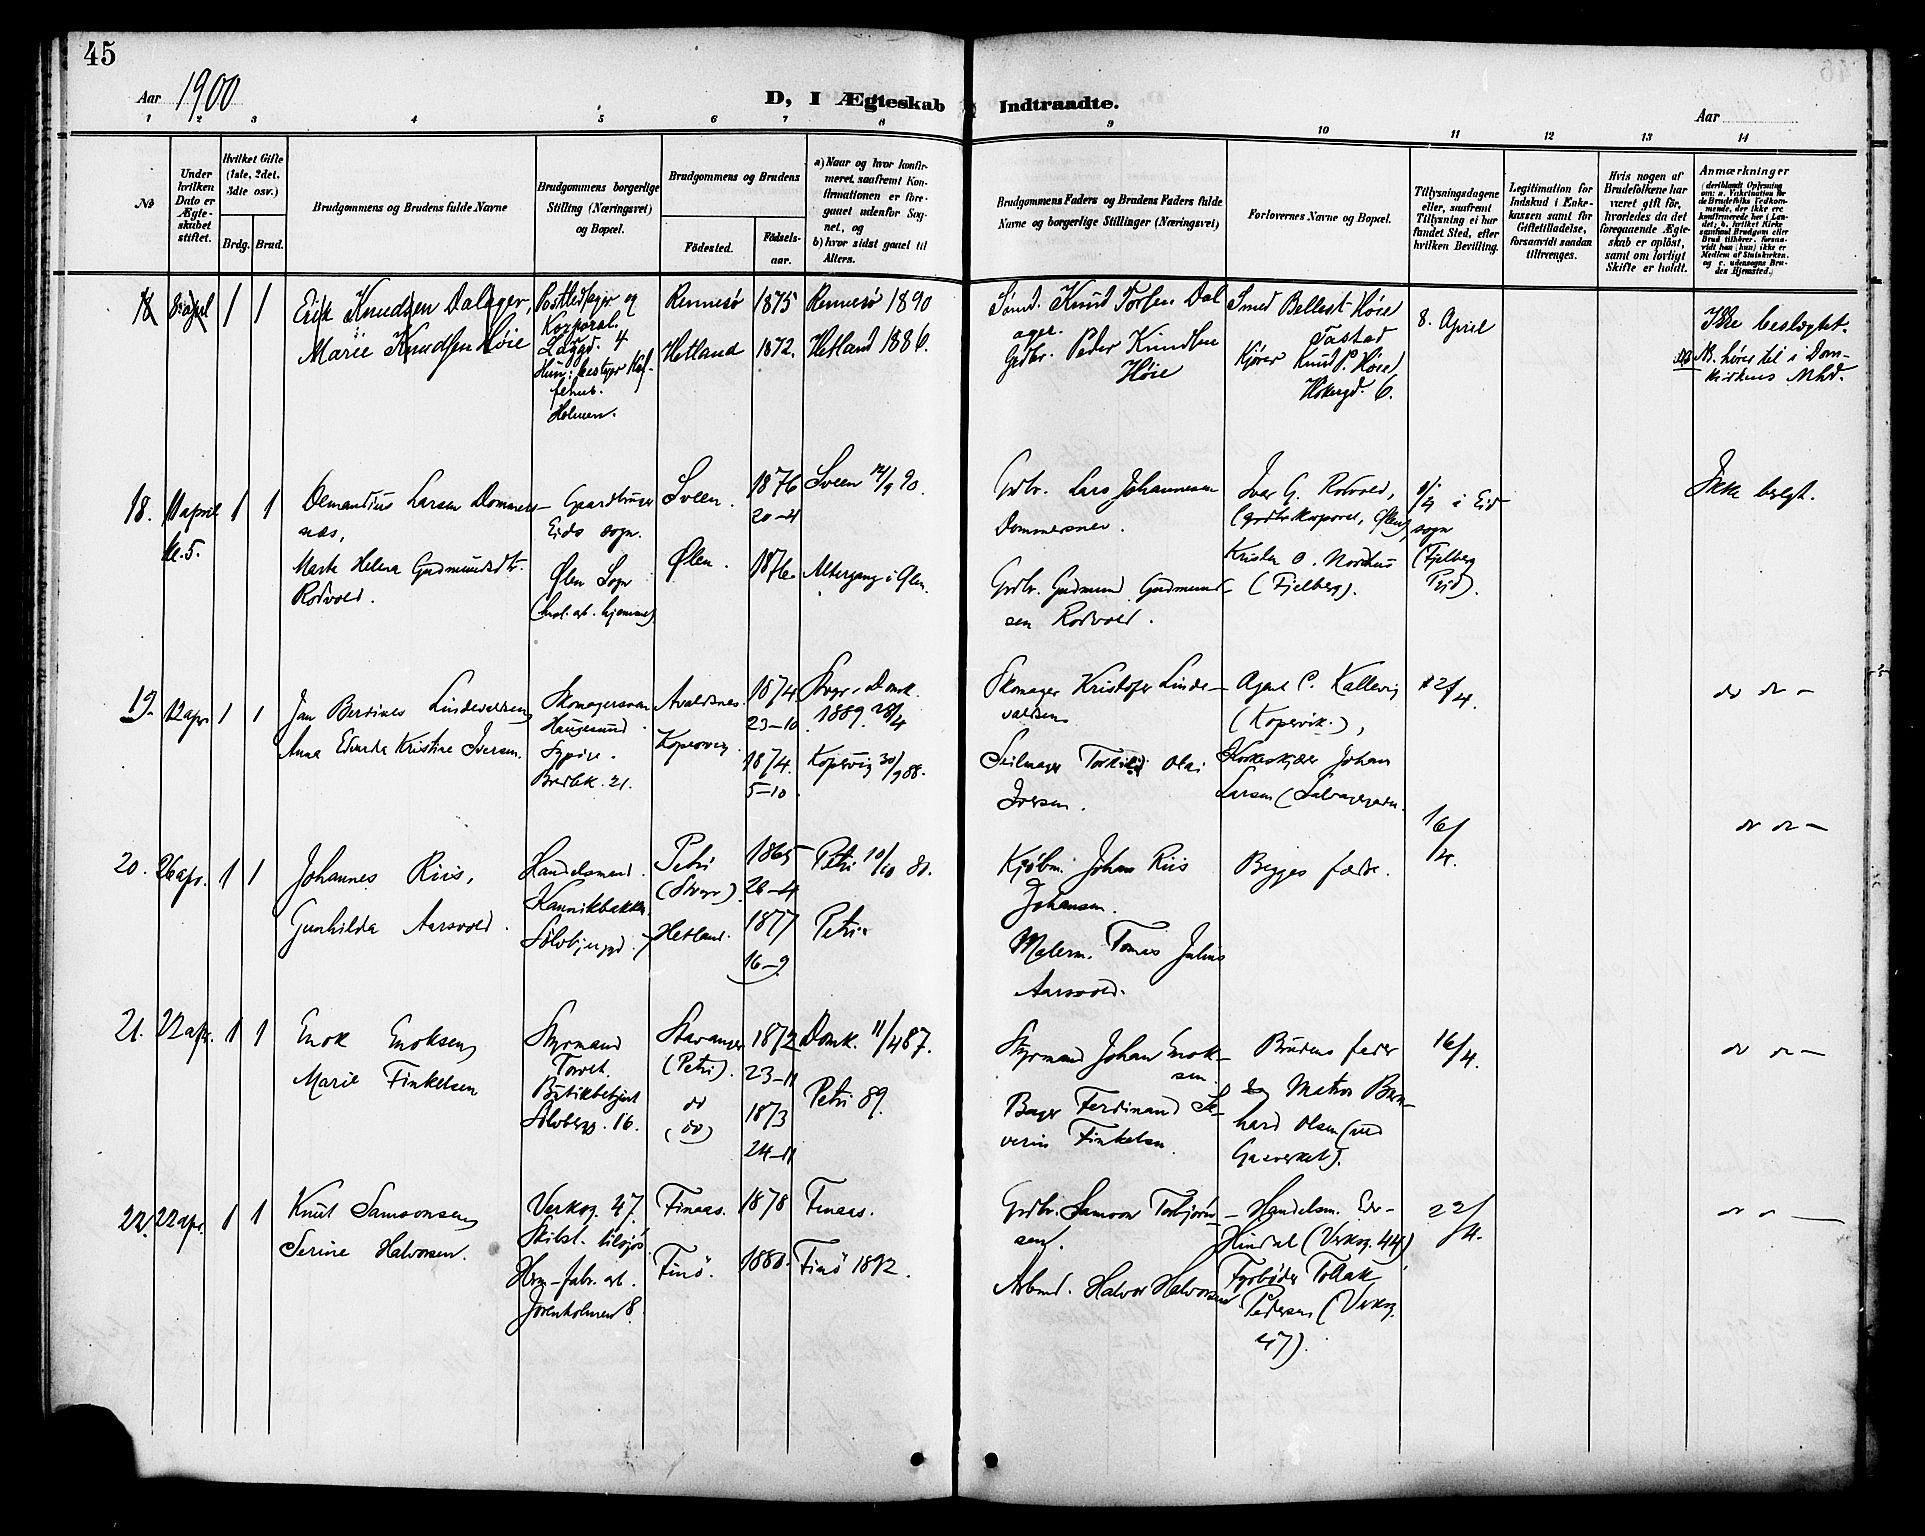 45
Aar 1900
D, I Ægteskab Indtraadte.
Aar
1 2 3 4 5 6 7 8 9 10 11 12 13 14
No
Under hvilken Dato er Ægteskabet stiftet.
Hvilket Gifte (1ste, 2det, 3die osv.)
Brdg. Brud.
Brudgommens og Brudens fulde Navne
Brudgommens borgerlige Stilling (Næringsvei) og Bopæl.
Brudgommens og Brudens
Fødested.
Fødsels-aar.
a) Naar og hvor konfirmeret, saafremt Konfirmationen er foregaaet udenfor Sognet, og
b) hvor sidst gaaet til Alters.
Brudgommens Faders og Brudens Faders fulde Navne og borgerlige Stillinger (Næringsvei)
Forlovernes Navne og Bopæl.
Tillysningsdagene eller, saafremt Tillysning ei har fundet Sted, efter hvilken Bevilling.
Legitimation for Indskud i Enkekassen samt for Giftetilladelse, forsaavidt saadan tiltrænges.
Hvis nogen af Brudefolkene har været gift før, hvorledes da det foregaaende Ægteskab er opløst, samt om lovligt Skifte er holdt.
Anmærkninger
18 1 1
Erik Knudsen Dalager,
Marie Knudsen Høie
Korporal
Holmen.
Rennesø 1875 Rennesø 1890
Hetland 1872. Hetland 1886.
Smd. Knud Torsen Dalager.
Grdbr. Peder Knudsen Høie
Smed Bellest Høie Tastad
Kjører Knud P. Høie
6.
8. April
Ikke beslægtet.
NB. hører til i Domkirkens Mhd.
18. 11 april kl. 5. 1 1
Larsen Dommersnæs,
Marta Helena Gudmundsdtr. Rodvold.
Gaardbruger Eids sogn.
Ølen Sogn
Sveen. 1876 20-4 Sveen 12/9 90.
Ølen. 1876. Altergang i Ølen.
Grdbr. Lars Johannesen Dommersnes.
Grdbr. Gudmund Gudmundsen Rodvold.
Ivar G. Rodvold,
Krister O. Nordhus (Fjelberg).
i Eid sogn (Fjelberg Pgjd).
Ikke beslgt.
19. 12 apr. 1 1
Jan Berdines Lindevaldsen
Anna Edvarda Kristine Iversen.
Skomagersvan Haugesund.
Sypige.
Bredbk. 21.
Avaldsnes. 1874 23-10 Domk. 1889. 28/4
Kopervig 1874. 5-10 Kopervig 30/9 88.
Skomager Kristofer Lindevaldsen
Seilmager Torkild Olai Iversen.
Agent C. Kallevig (Kopervik.),
Johan Larsen
2/4.
do do —
20. 26 apr. 1 1
Johannes Riis,
Gunhilda Aarsvold.
Handelsmand.
Kannikbakken
Sølvbjergd. 7
Petri 1865 26-4 Petri 10/10 80.
Hetland. 1877 16-9 Petri
Kjøbm. Johan Riis Johansen.
Malerm. Tomas Julius Aarsvold.
Begges fædre.
16/4.
do do —
21. 22 apr. 1 1
Enok Enoksen
Marie Finkelsen
Styrmand Torvet.
Butikbetjent
Sølvbergg. 16.
Stavanger (Petri). 1872 23-11 Domk. 11/4 87.
do (do) 1873 24-11 Petri 89.
Styrmand Johan Enoksen.
Bager Ferdinand Severin Finkelsen.
Brudens fader
Matros Bernhard Olsen (ved Gasverket).
16/4.
do do —
22. 22 apr. 1 1
Knut Samsonsen
Serine Halvorsen.
Verksg. 47.
Skibst. tilsjøs
Hrm-fabr. arb.
Jorenholmen 8.
Finaas. 1878 Finaas.
Finø. 1880. Finø 1892.
Grdbr. Samson Torbjørnsen.
Arbmd. Halvor Halvorsen
Handelsm. Hindal (Verksg. 44)
Fyrbøder Tollak Pedersen (Verksg. 47).
22/4.
do do —